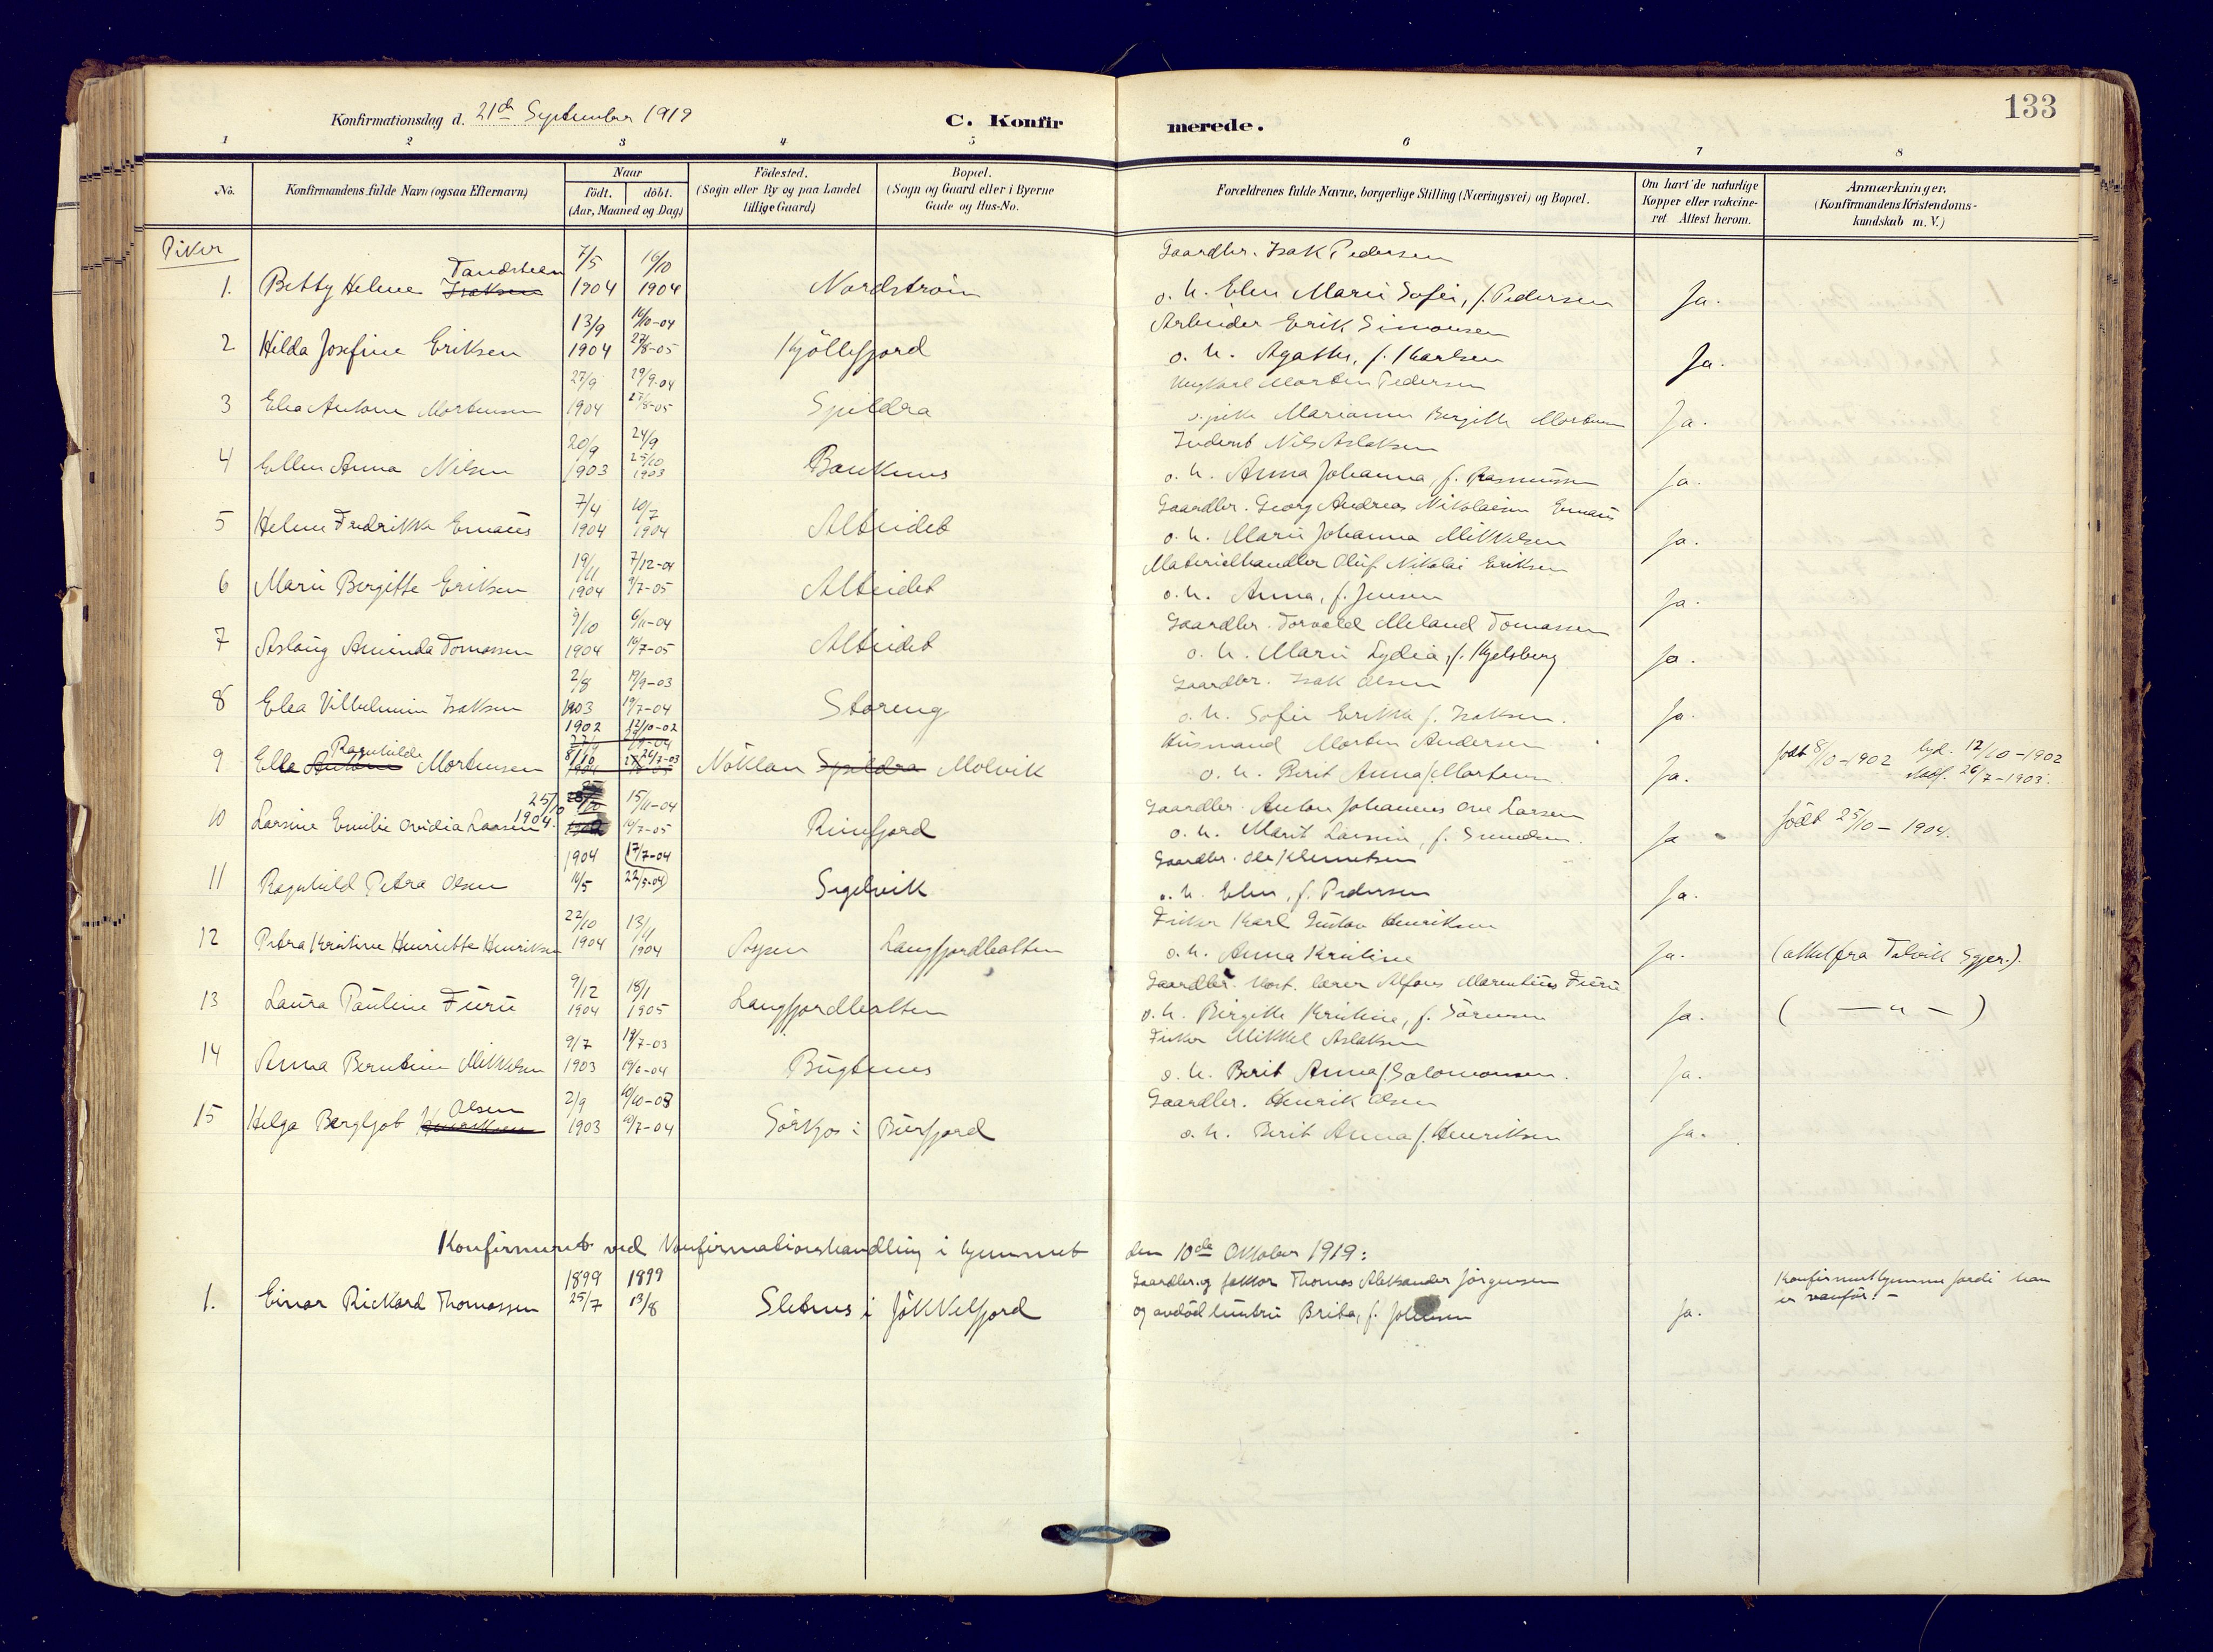 133
Konfirmationsdag d. 21de September 1919
C. Konfirmerede.
1 2 3 4 5 6 7 8
No. Konfirmandens fulde Navn (ogsaa Efternavn) Naar födt. döbt. (Aar, Maaned og Dag) Födested. (Sogn eller By og paa Landet tillige Gaard) Bopæl. (Sogn og Gaard eller i Byerne Gade og Hus-No. Forældrenes fulde Navne, borgerlige Stilling (Næringsvei) og Bopæl. Om havt de naturlige Kopper eller vakcineret. Attest herom. Anmærkninger. (Konfirmandens Kristendomskundskab m. V.)
Piker
Tandsteen 7/5 16/10 Gaardbr. Isak Pedersen
1. Betty Helene Isaksen 1904 1904 Nordström o. h. Elen Marie Sofie, f. Pedersen Ja.
13/9 16/10-04 Arbeider Erik Simonsen
2 Hilda Josefine Eriksen 1904 27/8-05 Kjöllefjord o. h. Agathe, f. Karlsen Ja.
27/9 29/9-04 Ungkarl Morten Pedersen
3 Elea Antone Mortensen 1904 27/8-05 Spildra o. pike Marianne Bergitte Mortensen Ja.
20/9 24/9 Inderst Nils Aslaksen
4 Ellen Anna Nilsen 1903 25/10 1903 Baukenes o. h. Anna Johanna, f. Rasmussen Ja.
7/4 10/7 Gaardbr. Georg Andreas Nikolaisen Emaus
5 Helene Fredrikke Emaus 1904 1904 Alteidet o. h. Marie Johanna Mikkelsen Ja.
19/11 7/12-04 Materialhandler Oluf Nikolai Eriksen
6 Marie Bergitte Eriksen 1904 9/7-05 Alteidet o. h. Anna, f. Jensen Ja.
9/10 6/11-04 Gaardbr. Torvald Meland Tomassen
7 Aslaug Aminda Tomassen 1904 16/7-05 Alteidet o. h. Marie Lydia, f. Kjelsberg Ja.
2/8 19/9-03 Gaardbr. Isak Olsen
8 Elea Vilhelmine Isaksen 1903 19/7-04 Storeng o. h. Sofie Erikke f. Isaksen. Ja.
1902 12/10-02 Husmand Morten Andersen
Ragnhilda
9 Elle Antone Mortensen 8/10 26/7-03 Nöklan Spildra Molvik o. h. Berit Anna f. Mortensen Ja. födt 8/10-1902 hjd. 12/10-1902
26/7-1903.
25/10 15/11-04 Gaardbr. Anton Johannes Ove Larsen
10 Larsine Emilie Ovidia Larsen 1904. 16/7-05 Reinfjord o. h. Marit Lovise, f. Ja födt 25/10-1904.
1904 17/7-04 Gaardbr. Ole Klemetsen
11 Ragnhild Petra Olsen 16/5 22/5-04 Segelvik o. h. Elen, f. Pedersen Ja.
22/10 13/11 Fisker Karl Gustav Henriksen
12 Petra Kristine Henriette Henriksen 1904 1904 Langfjordbotten o. h. Anna Kristine Ja. (attest fra Talvik Sgpr.).
9/12 18/1 Gaardbr. lærer Alfons Marentius Furu
13 Laura Pauline Furu 1904 1905 Langfjordbotten o. h. Birgitte Kristine, f. Sörensen Ja. ( — " — )
9/7 19/7-03 Fisker Mikkel Aslaksen
14 Anna Berntine Mikkelsen 1903 19/6-04 Bugtenes o. h. Berit Anna f. Salomonsen. Ja.
Olsen 2/9 10/10-03 Gaardbr. Henrik Olsen
15 Helga Bergljot Henriksen 1903 10/7-04 Sörkjos i Burfjord o. h. Berit Anna f. Henriksen Ja.
Konfirmeret ved Konfirmationshandling i hjemmet den 10de Oktober 1919:
1899 1899 Gaardbr. og faktor Thomas Aleksander Jörgensen Konfirmert hjemme fordi han
1. Einar Rickard Thomassen 25/7 13/8 Sletnes i Jökkelfjord og avdöd hustru Brita, f. Ja. er vanför.-